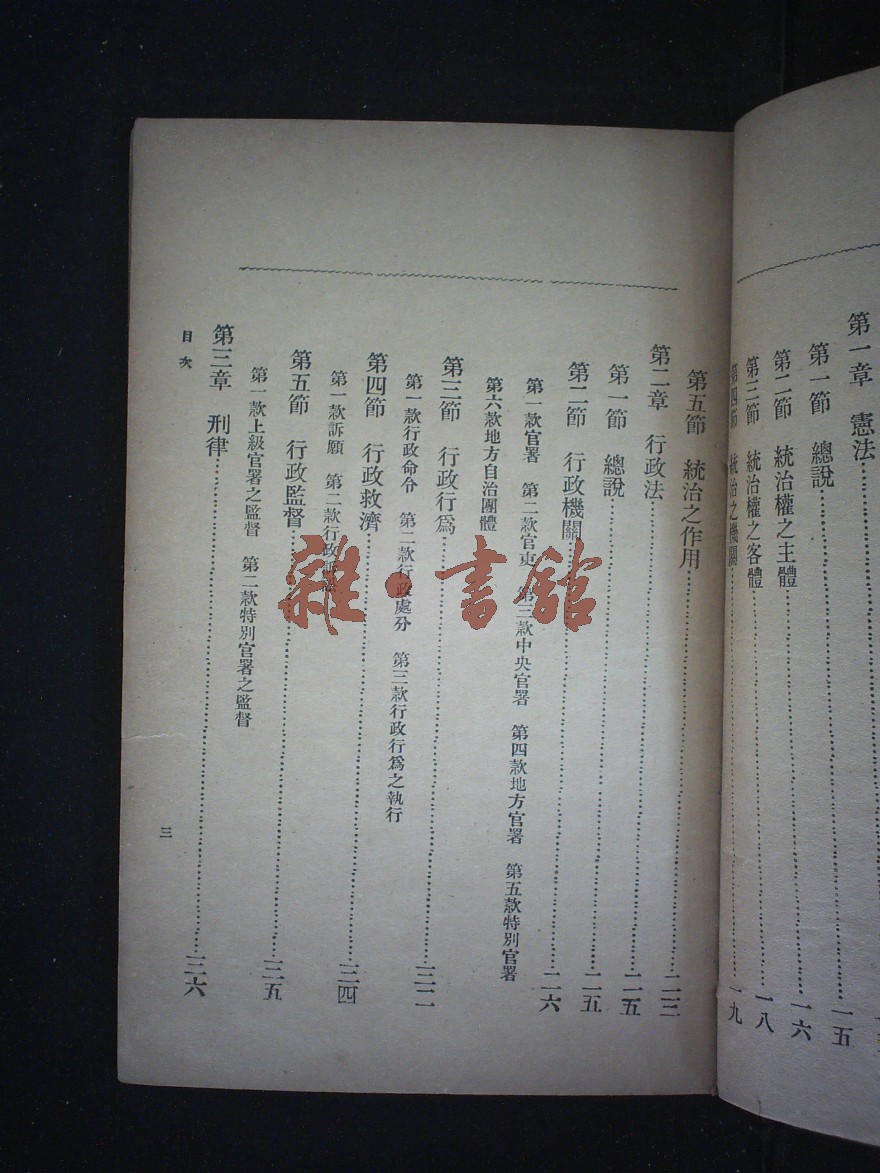 第一章 憲法
第一節 總說……一五
第二節 統治權之主體……一六
第三節 統治權之客體……一八
第四節 統治之機關……一九
第五節 統治之作用……二三
第二章 行政法……二五
第一節 總說……二五
第二節 行政機關……二六
第一款官署 第二款官吏 第三款中央官署 第四款地方官署 第五款特別官署
第六款地方自治團體
第三節 行政行爲……三二
第一款行政命令 第二款行政處分 第三款行政行爲之執行
第四節 行政救濟……三四
第一款訴願 第二款行政訴訟
第五節 行政監督……三五
第一款上級官署之監督 第二款特別官署之監督
第三章 刑律……三六
目次
三
雜·書館